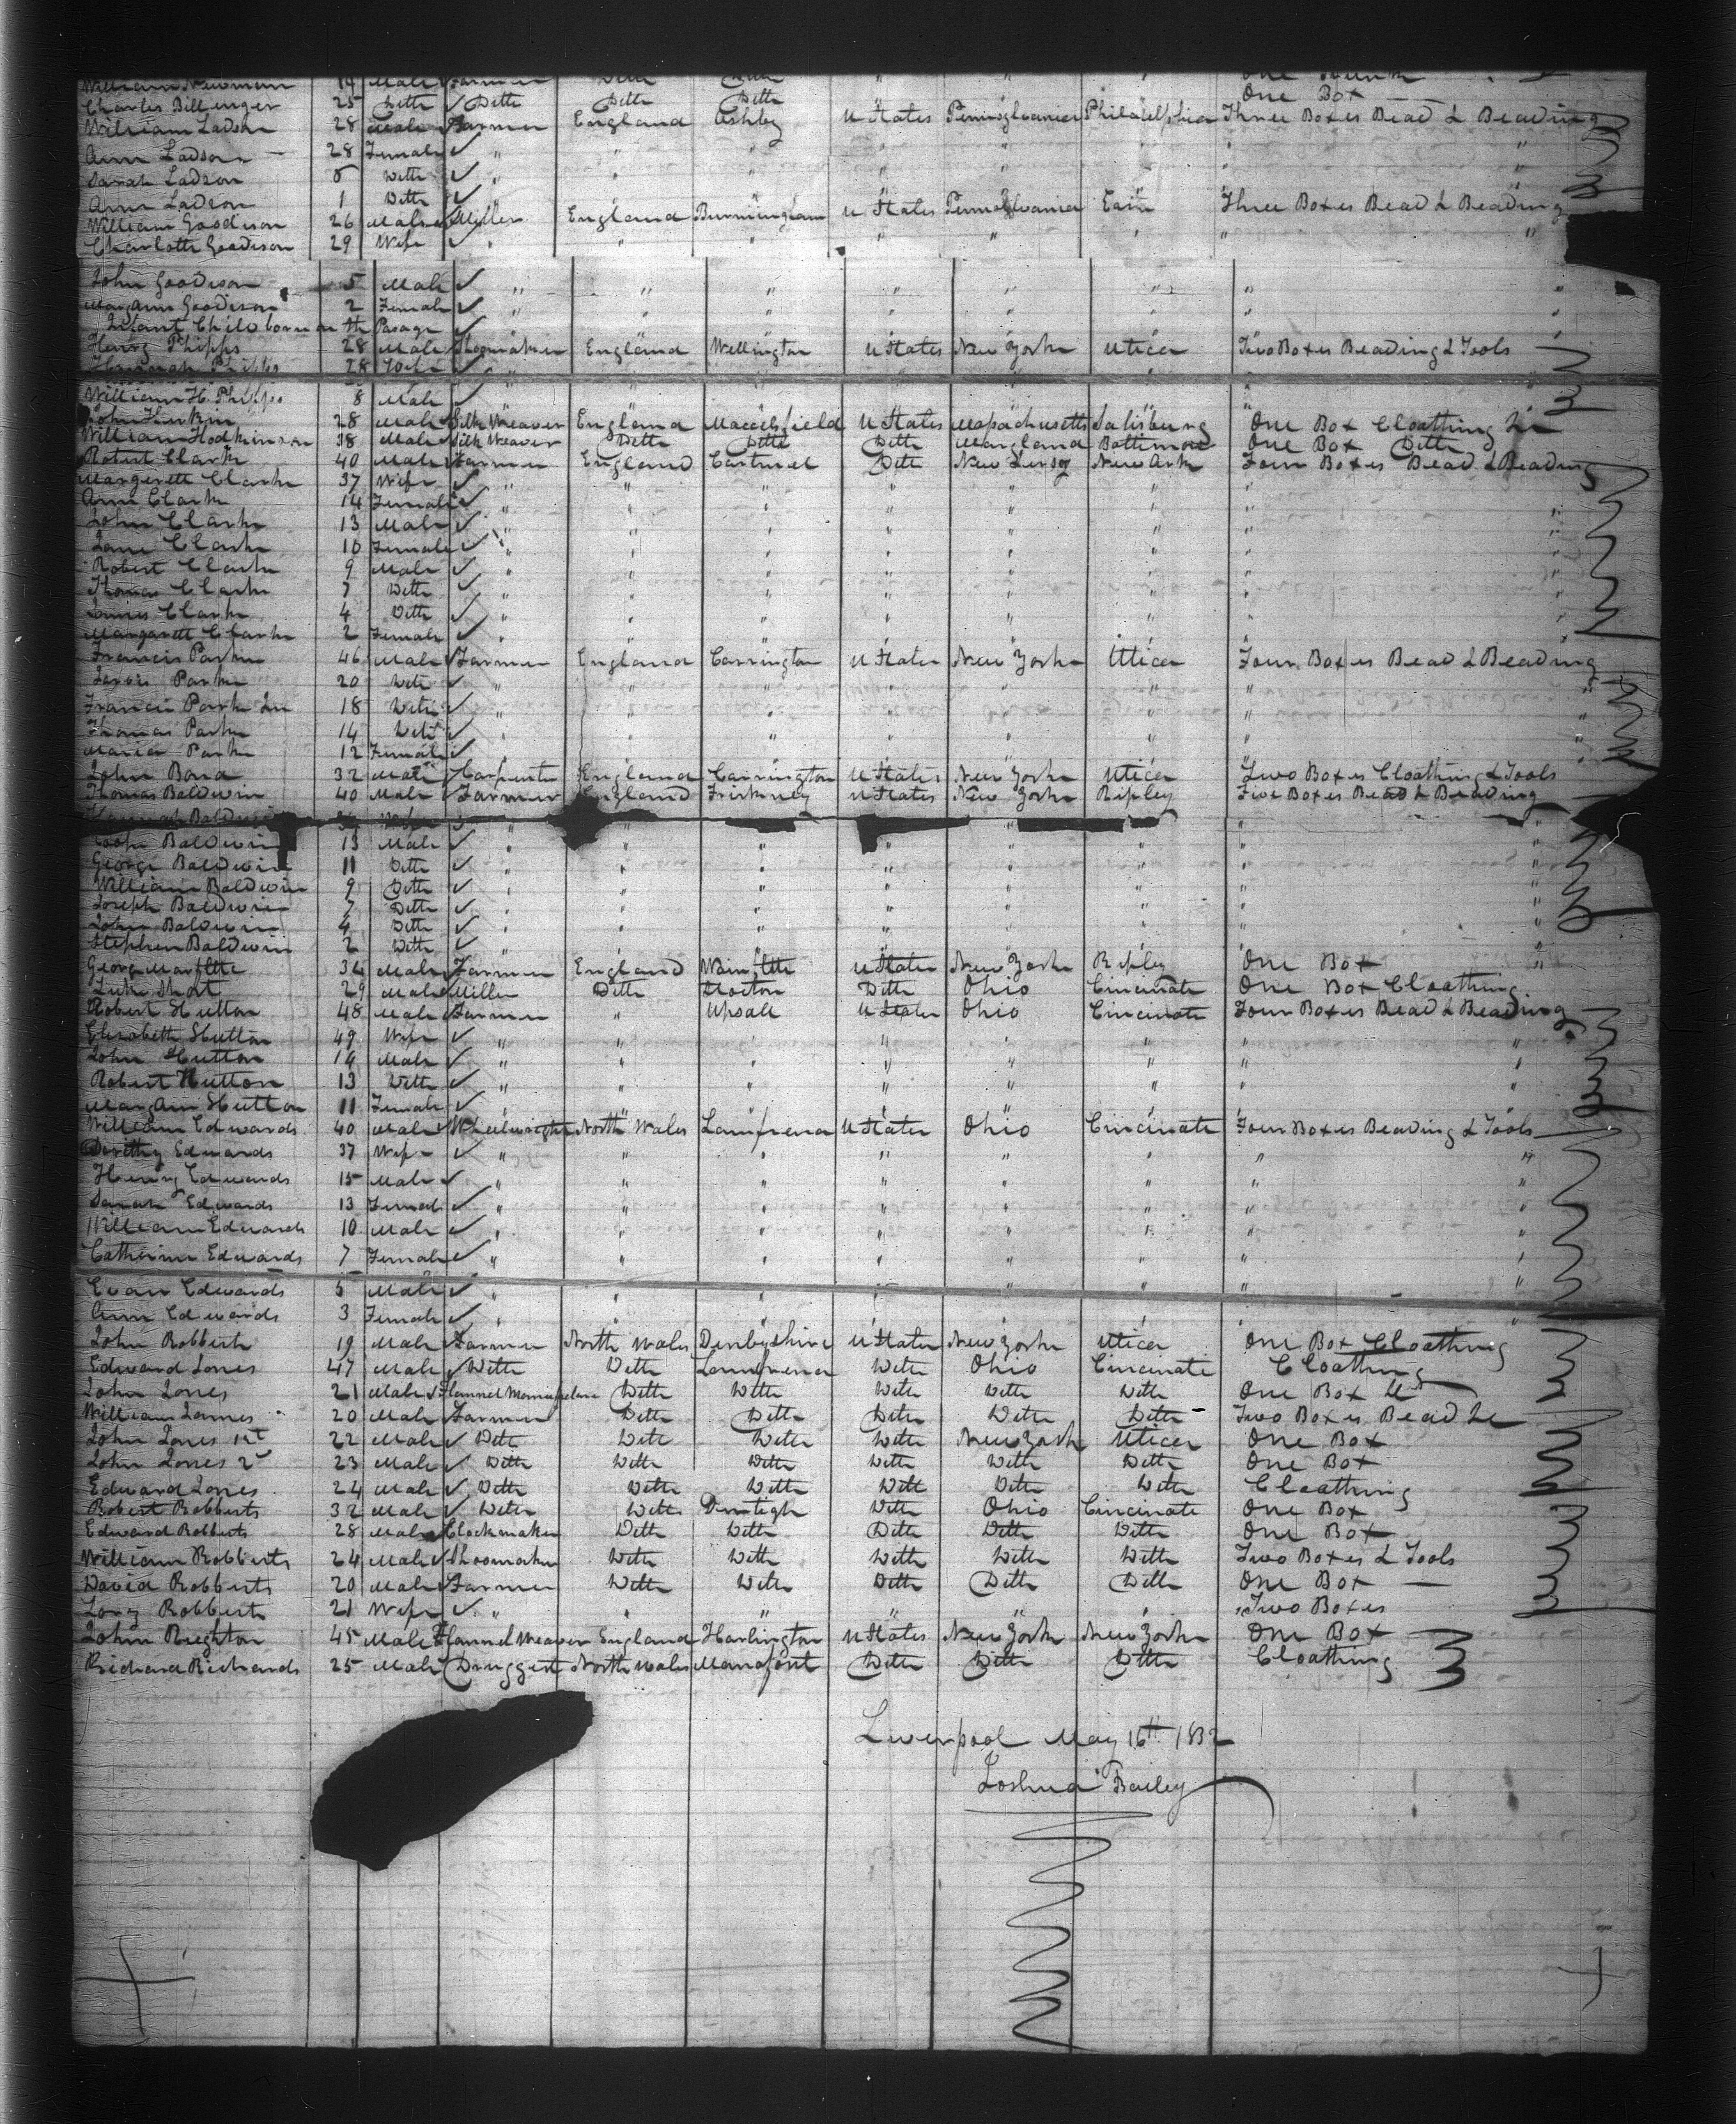 William Newman 19 Male Farmer Ditto Ditto " " " One Trunk
Charles Billenger 25 Ditto Ditto Ditto Ditto One Box
William Ladson 28 Male Farmer England Ashby U States Pennsylvania Philadelphia Three Boxes Bead & Beading
Ann Ladson 28 Female " " " " " " " "
Sarah Ladson 5 Ditto " " " " " " " "
Ann Ladson 1 Ditto " " " " " " " "
William Goodison 26 Male Miller England Burmingham U States Pennsylvania Three Boxes Bead & Beading
Charlotte Goodison 29 Wife " " " " " " " "
John Goodison 5 Male " " " " " " " "
Maryann Goodison 2 Female " " " " " " "
Infant Child born on th Pasage
Harry Phipps 28 Male Shoomaker England Wellington U States New York Utica Two Boxes Beading & Tools
Hannah Phipps 28 Wife
William H. Phipps 8 Male
John 28 Male Silk Weaver England Maccelsfield U States Massachusetts Salisburg One Box Cloathing
William Hodkinson 38 Male Silk Weaver Ditto Ditto Ditto Maryland Battimore One Box Ditto
Robert Clark 40 Male Farmer England Cartmel Ditto New Jersy New Ark Four Boxes Bead & Beading
Margerett Clark 37 Wife " " " " " " "
Ann Clark 14 Female " " " " " " "
John Clark 13 Male " " " " " " "
Jane Clark 10 Female " " " " " " "
Robert Clark 9 Male " " " " " " "
Thomas Clark 7 Ditto " " " " " " "
James Clark 4 Ditto " " " " " " "
Margarett Clark 2 Female " " " " " " "
Francis Park 46 Male Farmer England Carrington U States New York Utica Four Boxes Bead & Beading
Park 20 Ditto " " " " " " "
Francis Park Jun 18 Ditto " " " " " " "
Thomas Park 14 Ditto " " " " " " "
Maria Park 12 Female " " " " " " "
John Bond 32 Male Carpenter England Carrington U States New York Utica Two Boxes Cloathing & Tools
Thomas Baldwin 40 Male Farmer England Friskney U States New York Ripley Five Boxes Bead & Beading
Hannah Baldwin Wife
John Baldwin 13 Male " " " " " " "
George Baldwin 11 Ditto " " " " " " "
William Baldwin 9 Ditto " " " " " " "
Joseph Baldwin 7 Ditto " " " " " " "
John Baldwin 4 Ditto " " " " " " "
Stephen Baldwin 2 Ditto " " " " " " "
George 34 Male Farmer England U States New York Ripley One Box
Luke Short 29 Male Miller Ditto Ditto Ohio Cincinate One Box Cloathing
Robert Hutton 48 Male Farmer " Upsall U States Ohio Cincinate Four Boxes Bead & Beading
Elisabeth Hutton 49 Wife " " " " " " " "
John Hutton 14 Male " " " " " " " "
Robert Hutton 13 Ditto " " " " " " " "
Maryann Hutton 11 Female " " " " " " "
William Edwards 40 Male Wheelwright North Wales U States Ohio Cincinate Four Boxes Beading & Tools
Dorithy Edwards 37 Wife " " " " " " " "
Henry Edwards 15 Male " " " " " " "
Sarah Edwards 13 Femal " " " " " " " "
William Edwards 10 Male " " " " " " " "
Catherine Edwards 7 Female " " " " " " " "
Evan Edwards 5 Male " " " " " " " "
Ann Edwards 3 Female " " " " " " "
John Robberts 19 Male Farmer North Wales Denbyshire U States New York Utica One Box Cloathing
Edward Jones 47 Male Ditto Ditto Ditto Ohio Cincinate Cloathing
John Jones 21 Male Flannel Ditto Ditto Ditto Ditto Ditto One Box &c
William James 20 Male Farmer Ditto Ditto Ditto Ditto Ditto Two Boxes Bead &c
John Jones 1st 22 Male Ditto Ditto Ditto Ditto New York Utica One Box
John Jones 2d 23 Male Ditto Ditto Ditto Ditto Ditto Ditto One Box
Edward Jones 24 Male Ditto Ditto Ditto Ditto Ditto Ditto Cloathing
Robert Robberts 32 Male Ditto Ditto Ditto Ohio Cincinate One Box
Edward Robberts 28 Male Clockmaker Ditto Ditto Ditto Ditto Ditto One Box
William Robberts 24 Male Shoomaker Ditto Ditto Ditto Ditto Ditto Two Boxes & Tools
David Robberts 20 Male Farmer Ditto Ditto Ditto Ditto Ditto One Box
Robberts 21 Wife " " " " " " Two Boxes
John Righton 45 Male Flannel Weaver England Harlington U States New York New York One Box
Richard Richards 25 Male Druggest North Wales Ditto Ditto Ditto Cloathing
Liverpool May 16th 1832
Joshua Bailey